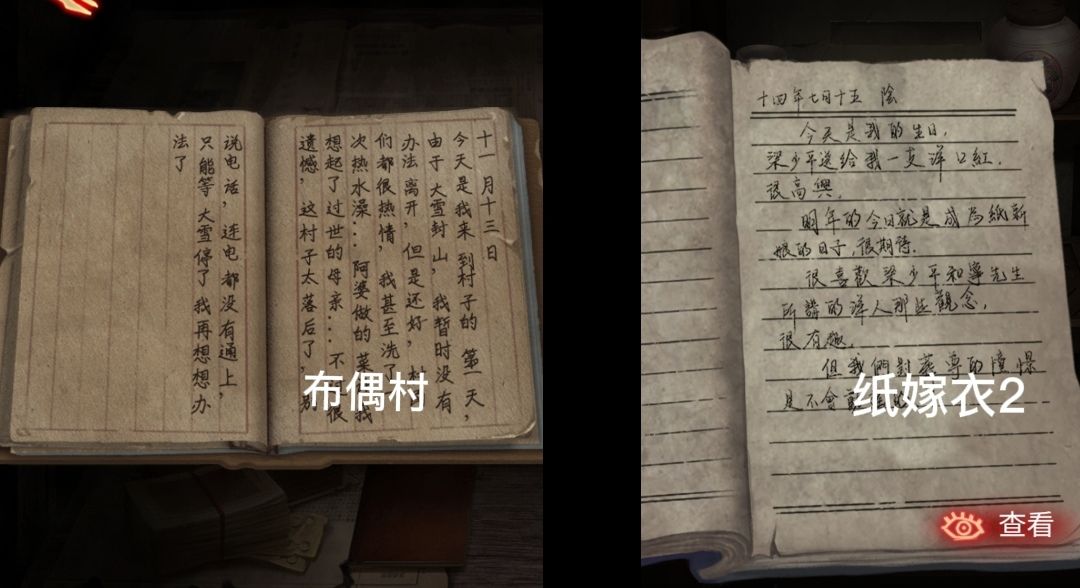 十一月十三日
今天是我来到村子的第一天，
由于大雪封山，我暂时没有
办法离开，但是还好，
们都很热情，我甚至洗了
次热水澡…阿婆做的菜我
想起了过世的母亲…不很
遗憾，这村子太落后了，别
说电话，连电都没有通上，
只能等大雪停了我再想想办
法了
布偶村
十四年七月十五 陰
今天是我的生日，
梁少平送給我一支洋口紅，
很高興。
明年的今日就是成為紙新
娘的日子，很期待。
很喜歡梁少平和寧先生
所講的洋人那些觀念，
很有趣。
但我們對尊的憧憬
是不會
纸嫁衣2
查看